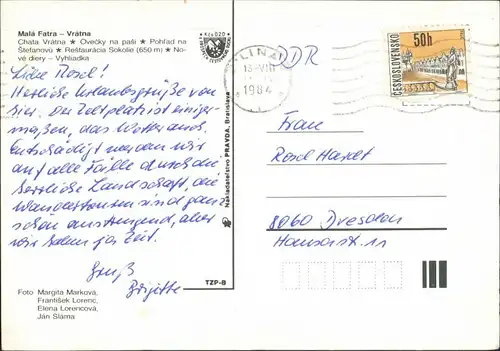 Malá Fatra – Vrátna
Chata Vrátna ★ Ovečky na paši ★ Pohľad na
Štefanovú ★ Reštaurácia Sokolie (650 m) ★ No-
vé diery – Vyhliadka
Liebe Rosel!
Herzliche Urlaubsgrüße von
hier. Der Zeltplatz ist einiger-
maßen, das Wetter auch.
Entschädigt werden wir
auf alle Fälle durch die
herrliche Landschaft, die
Wandertouren sind ganz
schön anstrengend, aber
wir haben ja Zeit.
Gruß
Brigitte
Foto Margita Marková,
František Lorenc,
Elena Lorencová,
Ján Sláma
TZP-8
Nakladateľstvo PRAVDA, Bratislava
K čs 0,20
ŽILINA
1984
DDR
ČESKOSLOVENSKO
50h
Frau
Rosel Hardt
8060 Dresden
Hansastr. 11